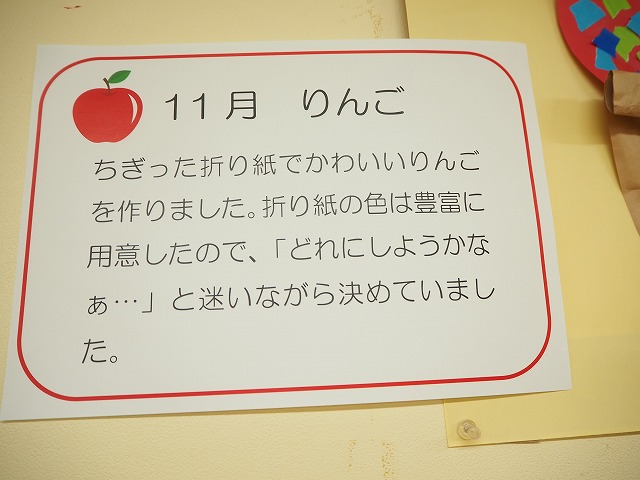 11月 りんご
ちぎった折り紙でかわいいりんご
を作りました。折り紙の色は豊富に
用意したので、「どれにしようかな
ぁ…」と迷いながら決めていまし
た。